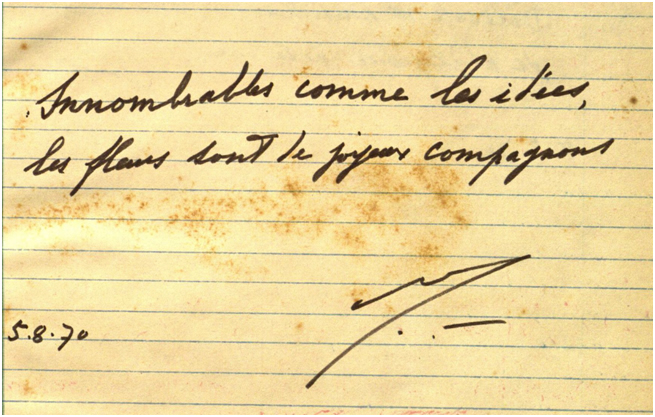 Innombrables comme les idées,
les fleurs sont de joyeux compagnons
5.8.70